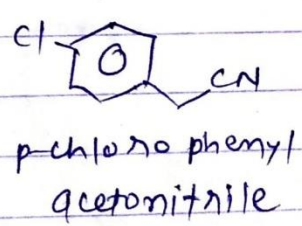 Cl
CN
p-chloro phenyl
acetonitrile